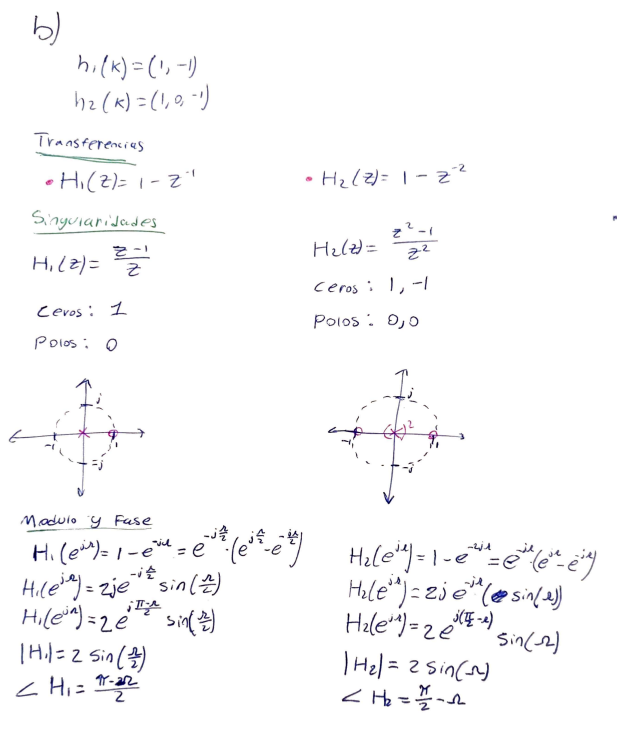 b)
h₁(k)=(1,-1)
h₂(k)=(1,0,-1)
Transferencias
• H₁(z)= 1 - z⁻¹
• H₂(z)= 1 - z⁻²
Singularidades
H₁(z)= (z-1)/z
Ceros: 1
Polos: 0
H₂(z)= (z²-1)/z²
Ceros: 1, -1
Polos: 0,0
j
-1
1
-j
j
-1
( )²
1
-j
Modulo y Fase
H₁(e^{jΩ})=1-e^{-jΩ}=e^{-jΩ/2}·(e^{jΩ/2}-e^{-jΩ/2})
H₁(e^{jΩ})=2je^{-jΩ/2} sin(Ω/2)
H₁(e^{jΩ})=2e^{j(π-Ω)/2} sin(Ω/2)
|H₁|=2 sin(Ω/2)
∠ H₁= (π-Ω)/2
H₂(e^{jΩ})=1-e^{-2jΩ}=e^{-jΩ}·(e^{jΩ}-e^{-jΩ})
H₂(e^{jΩ})=2j e^{-jΩ}( sin(Ω))
H₂(e^{jΩ})=2e^{j(π/2-Ω)} sin(Ω)
|H₂|= 2 sin(Ω)
∠ H₂ = π/2 - Ω